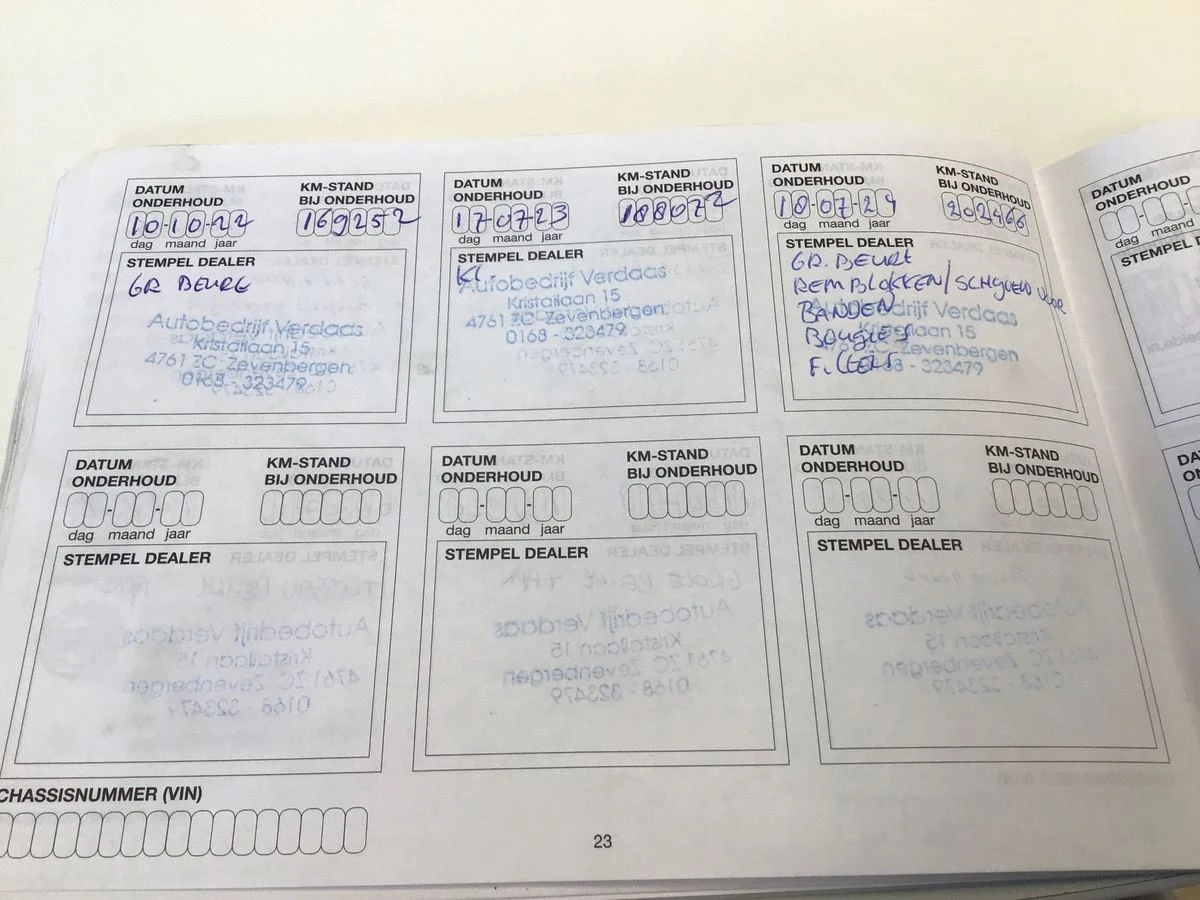 DATUM ONDERHOUD
KM-STAND BIJ ONDERHOUD
10-10-22
169252
dag maand jaar
STEMPEL DEALER
GR BEURT
Autobedrijf Verdaas
Kristallaan 15
4761 ZC Zevenbergen
0168 - 323479
DATUM ONDERHOUD
KM-STAND BIJ ONDERHOUD
17-07-23
188072
dag maand jaar
STEMPEL DEALER
Kl.
Autobedrijf Verdaas
Kristallaan 15
4761 ZC Zevenbergen
0168 - 323479
DATUM ONDERHOUD
KM-STAND BIJ ONDERHOUD
18-07-24
202466
dag maand jaar
STEMPEL DEALER
GR. BEURT
REMBLOKKEN/SCHYVEN VOOR
BANDEN
BOUGIES
FILTERS
Autobedrijf Verdaas
Kristallaan 15
4761 ZC Zevenbergen
0168 - 323479
DATUM ONDERHOUD
dag maand
STEMPEL
DATUM ONDERHOUD
KM-STAND BIJ ONDERHOUD
dag maand jaar
STEMPEL DEALER
DATUM ONDERHOUD
KM-STAND BIJ ONDERHOUD
dag maand jaar
STEMPEL DEALER
DATUM ONDERHOUD
KM-STAND BIJ ONDERHOUD
dag maand jaar
STEMPEL DEALER
CHASSISNUMMER (VIN)
23